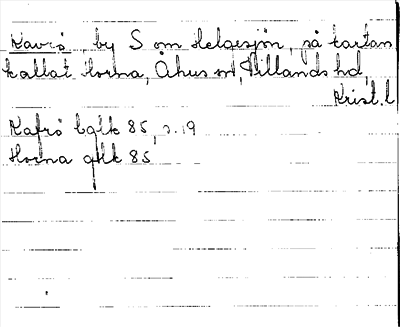 Kavrö, by S om Helgesjön, på kartan
kallat Horna, Åhus sn, Villands hd,
Krist.l
Kafrö bglk 85, s. 19
Horna glk 85